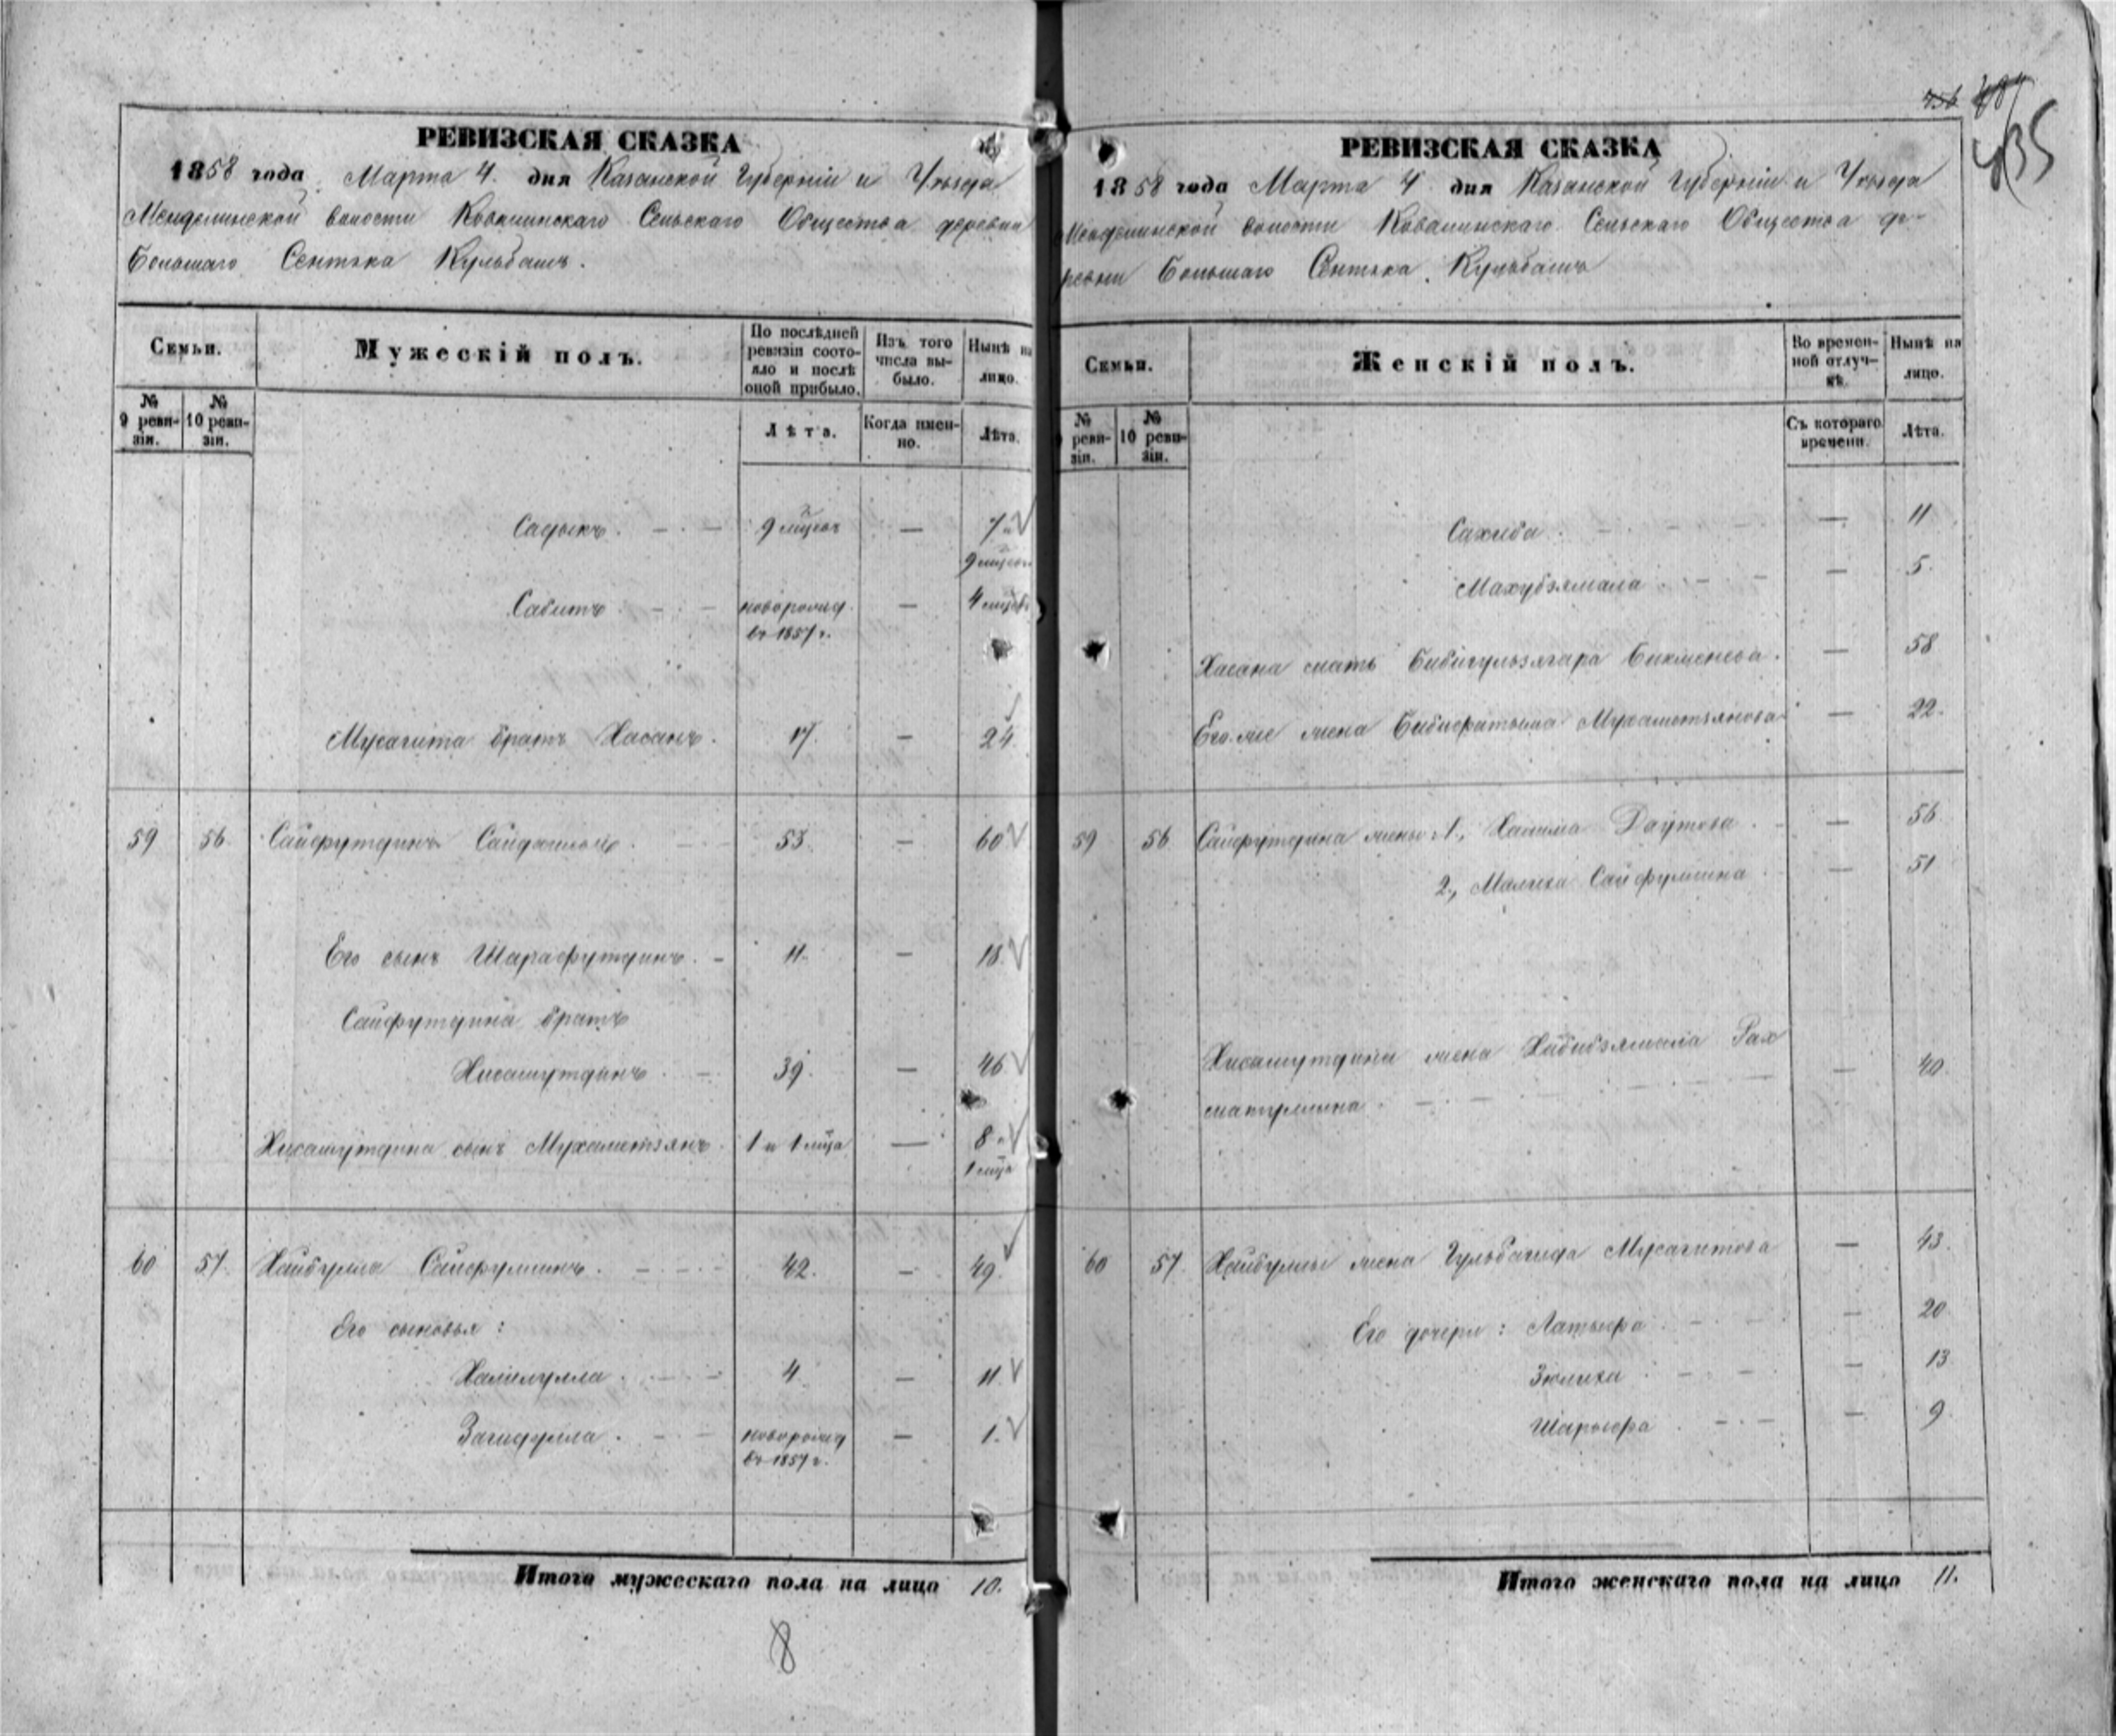 435
РЕВИЗСКАЯ СКАЗКА
1858 года Марта 4. дня Казанской Губерніи и Уѣзда
Менделинской волости Ковалинскаго Сельскаго Общества деревни
Большаго Сентяка Кульбашъ.
Семьи.
Мужескій полъ.
По послѣдней ревизіи состояло и послѣ оной прибыло.
Изъ того числа выбыло.
Нынѣ на лицо.
№ 9 ревизіи.
№ 10 ревизіи.
Лѣта.
Когда именно.
Лѣта.
Садыкъ. 9 мцовъ — 7 и
9 мцовъ
Сабитъ — новорожд. — 4 мцовъ
въ 1857 г.
Мусагита братъ Хасанъ. 17. — 24.
59 56. Сайфутдинъ 53. — 60
Его сынъ Шарафутдинъ. 11. — 18.
Сайфутдина братъ
Хисамутдинъ 39. — 46
Хисамутдина сынъ Мухаметзянъ. 1 и 1 мца — 8 и
1 мца
60 57. Хайбулла Сайфуллинъ. 42. — 49.
Его сыновья:
Халилулла 4. — 11.
Загидулла. новорожд — 1.
въ 1857 г.
Итого мужескаго пола на лицо 10.
8
РЕВИЗСКАЯ СКАЗКА
1858 года Марта 4 дня Казанской Губерніи и Уѣзда
Менделинской волости Ковалинскаго Сельскаго Общества де-
ревни Большаго Сентяка Кульбашъ
Семьи.
Женскій полъ.
Во временной отлучкѣ.
Нынѣ на лицо.
№ ревизіи.
№ 10 ревизіи.
Съ котораго времени.
Лѣта.
Сахиба — 11
Махубзямала — 5.
Хасана мать Бибигульзягара Бикменева. — 58
Его же жена Бибифатыма Мухаметзянова — 22.
59 56 Сайфутдина жены: 1., Халима Даутова — 56
2., Малика Сайфуллина — 51
Хисамутдина жена Хабибзямала Рах
матуллина — 40.
60 57. Хайбуллы жена Гульбагида Мусагитова — 43.
Его дочери: Латыфа — 20
Зюлиха — 13
Шарыфа — 9
Итого женскаго пола на лицо 11.